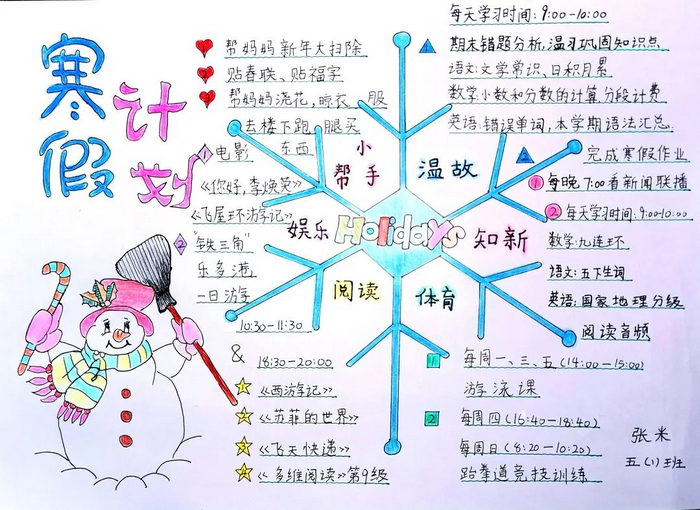 寒假计划
帮妈妈新年大扫除
贴春联、贴福字
帮妈妈浇花,晾衣服
去楼下跑腿买东西
小帮手
1 电影
《你好,李焕英》
《飞屋环游记》
2 "铁三角"
乐多港
一日游
娱乐
Holidays
温故
每天学习时间:9:00-10:00
期末错题分析,温习巩固知识点
语文:文学常识、日积月累
数学:小数和分数的计算,分段计费
英语:错误单词,本学期语法汇总
知新
完成寒假作业
1 每晚7:00看新闻联播
2 每天学习时间:9:00-10:00
数学:九连环
语文:五下生词
英语:国家地理分级
阅读音频
阅读
10:30-11:30
&
18:30-20:00
《西游记》
《苏菲的世界》
《飞天快递》
《多维阅读》第9级
体育
1 每周一、三、五(14:00-15:00)
游泳课
2 每周四(15:40-18:40)
每周日(8:20-10:20)
跆拳道竞技训练
张米
五(1)班